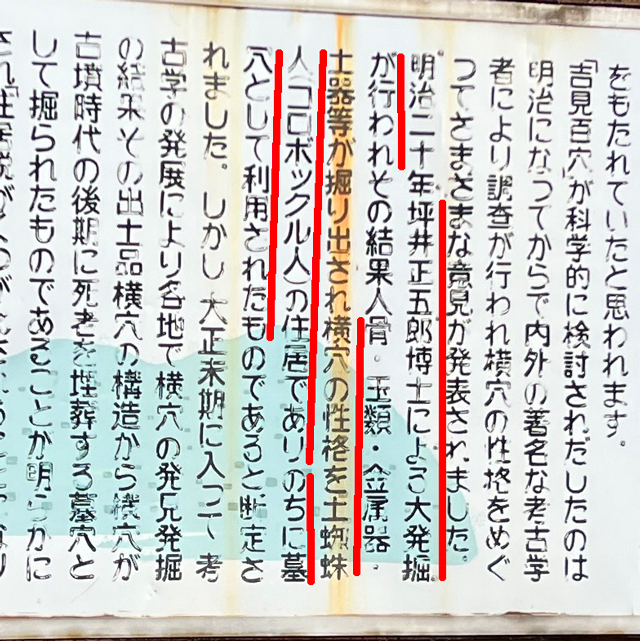 をもたれていたと思われます。
「吉見百穴が科学的に検討されだしたのは
明治になってからで内外の著名な考古学
者により調査が行われ横穴の性格をめぐ
ってさまざまな意見が発表されました。
明治二十年坪井正五郎博士による大発掘
が行われその結果人骨・玉類・金属器・
土器等が掘り出され横穴の性格を土蜘蛛
人(コロボックル人)の住居でありのちに墓
穴として利用されたものであると断定さ
れました。しかし大正末期に入って考
古学の発展により各地で横穴の発見発掘
の結果その出土品横穴の構造から横穴が
古墳時代の後期に死者を埋葬する墓穴と
して掘られたものであることが明らかに
され「住居説が